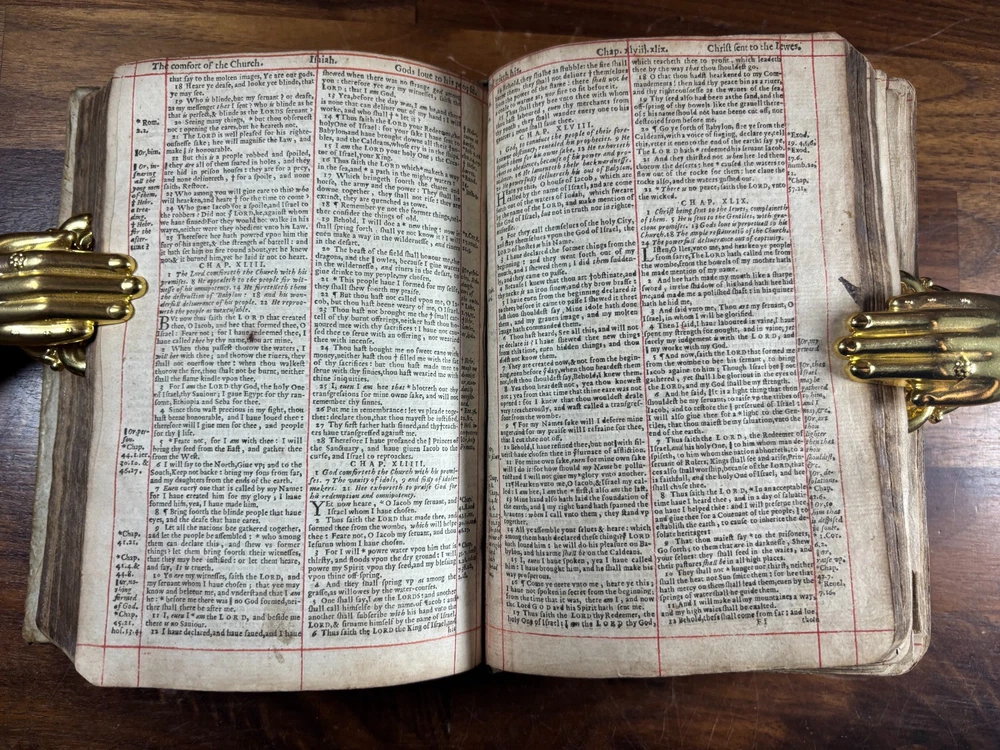 The comfort of the Church.
Iſaiah.
that ſay to the molten images, Ye are our gods.
18 Heare ye deafe, and looke ye blinde, that
ye may ſee.
19 Who is blinde, but my ſeruant? or deafe,
as my meſſenger that I ſent? Who is blinde as he
that is perfect, & blinde as the LORDS ſeruant?
20 Seeing many things, * but thou obſerueſt
not: opening the eares, but he heareth not.
21 The LORD is well pleaſed for his righte-
ouſneſſe ſake; hee will magnifie the Law, and
make it honourable.
22 But this is a people robbed and ſpoiled,
they are all of them ſnared in holes, and they
are hid in priſon houſes: they are for a prey,
and none deliuereth; for a ſpoile, and none
ſaith, Reſtore.
23 Who among you will giue eare to this? who
will hearken, and heare for the time to come?
24 Who gaue Iacob for a ſpoile, and Iſrael to
the robbers? Did not the LORD, he, againſt whom
we haue ſinned? For they would not walke in his
wayes, neither were they obedient vnto his Law.
25 Therefore he hath powred vpon him the
fury of his anger, & the ſtrength of battell: and
it hath ſet him on fire round about, yet he knew
not; & it burned him, yet he laid it not to heart.
CHAP. XLIII.
1 The Lord comforteth the Church with his
promiſes. 8 He appealeth to the people for wit-
neſſe of his omnipotencie. 14 He foretelleth them
the deſtruction of Babylon: 18 and his won-
derfull deliuerance of his people. 22 He repro-
ueth the people as inexcuſable.
BVt now thus ſaith the LORD that created
thee, O Iacob, and hee that formed thee, O
Iſrael: Feare not; for I haue redeemed thee, I
haue called thee by thy name, thou art mine.
2 When thou paſſeſt thorow the waters, I
will bee with thee; and thorow the riuers, they
ſhall not ouerflow thee: when thou walkeſt
thorow the fire, thou ſhalt not be burnt; neither
ſhall the flame kindle vpon thee.
3 For I am the LORD thy God, the holy One
of Iſrael, thy Sauiour; I gaue Egypt for thy ran-
ſome, Ethiopia and Seba for thee.
4 Since thou waſt precious in my ſight, thou
haſt beene honourable, and I haue loued thee:
therefore will I giue men for thee, and people
for thy life.
5 * Feare not, for I am with thee: I will
bring thy ſeed from the Eaſt, and gather thee
from the Weſt.
6 I will ſay to the North, Giue vp; and to the
South, Keep not backe: bring my ſons from far,
and my daughters from the ends of the earth.
7 Euen euery one that is called by my Name:
for I haue created him for my glory, I haue
formed him, yea, I haue made him.
8 Bring foorth the blinde people that haue
eyes, and the deafe that haue eares.
9 Let all the nations bee gathered together,
and let the people be aſſembled: * who among
them can declare this, and ſhew vs former
things? let them bring foorth their witneſſes,
that they may bee iuſtified: or let them heare,
and ſay, It is trueth.
10 Ye are my witneſſes, ſaith the LORD, and
my ſeruant whom I haue choſen: that yee may
know and beleeue me, and vnderſtand that I am
he: * before me there was no God formed, nei-
ther ſhall there be after me.
11 I, euen I am the LORD, and beſide me
there is no Sauiour.
12 I haue declared, and haue ſaued, and I haue
* Rom.
2.1.
*Chap.
41.21,
*Chap.
41.4.&
44.8.
*Chap.
45.21.
hoſ.13.4
Gods loue to his people
ſhewed when there was no ſtrange god among
you: therefore yee are my witneſſes, ſaith the
LORD, that I am God.
13 Yea, before the day was, I am he; and there
is none
worke, and who ſhall * let it?
14 ¶ Thus ſaith the LORD your Redeemer, the
holy One of Iſrael; For your ſake I haue ſent to
Babylon, and haue brought downe all their no-
bles, and the Caldeans, whoſe cry is in the ſhips.
15 I am the LORD your holy One, the Creator
of Iſrael, your King.
16 Thus ſaith the LORD which * maketh a way
in the ſea, and a path in the mighty waters:
17 Which bringeth foorth the charet and
horſe, the army and the power: They ſhall lie
downe together, they ſhall not riſe: they are
extinct, they are quenched as towe.
18 ¶ * Remember ye not the former things, nei-
ther conſider the things of old.
19 Behold, I will doe a * new thing: now it
ſhall ſpring forth; ſhall ye not know it? I will
euen make a way in the wilderneſſe, and riuers
in the deſart.
20 The beaſt of the field ſhall honour me, the
dragons, and the owles, becauſe I giue waters
in the wilderneſſe, and riuers in the deſart, to
giue drinke to my people, my choſen.
21 * This people haue I formed for my ſelfe,
they ſhall ſhew foorth my praiſe.
22 ¶ But thou haſt not called vpon me, O Ia-
cob, but thou haſt beene weary of me, O Iſrael.
23 Thou haſt not brought me the ſmall cat-
tell of thy burnt offerings, neither haſt thou ho-
noured me with thy ſacrifices: I haue not cau-
ſed thee to ſerue with an offering, nor wearied
thee with incenſe.
24 Thou haſt bought me no ſweet cane with
money, neither haſt thou filled me with the fat
of thy ſacrifices: but thou haſt made me to
ſerue with thy ſinnes, thou haſt wearied me with
thine iniquities.
25 I, euen I am hee that * blotteth out thy
tranſgreſſions for mine owne ſake, and will not
remember thy ſinnes.
26 Put me in remembrance: let vs pleade toge-
ther: declare thou, that thou mayeſt be iuſtified.
27 Thy firſt father hath ſinned, and thy teach-
ers haue tranſgreſſed againſt me.
28 Therefore I haue profaned the Princes of
the Sanctuary, and haue giuen Iacob to the
curſe, and Iſrael to reproaches.
CHAP. XLIIII.
1 God comforteth the Church with his promi-
ſes. 7 The vanity of idols, 9 and folly of idol-
makers. 21 Hee exhorteth to praiſe God for
his redemption and omnipotency.
YEt now heare, * O Iacob my ſeruant, and
Iſrael whom I haue choſen.
2 Thus ſaith the LORD that made thee, and
formed thee from the wombe, which will helpe
thee: Feare not, O Iacob my ſeruant, and thou
Ieſurun whom I haue choſen.
3 For I will * powre water vpon him that is
thirſty, and floods vpon the dry ground: I will
powre my Spirit vpon thy ſeed, and my bleſſing
vpon thine off-ſpring.
4 And they ſhall ſpring vp as among the
graſſe, as willowes by the water-courſes.
5 One ſhall ſay, I am the LORDS: and another
ſhall call himſelfe by the name of Iacob: and
another ſhall ſubſcribe with his hand vnto the
LORD, & ſurname himſelfe by the name of Iſrael.
6 Thus ſaith the LORD the King of Iſrael, and
his
Chap. xlviij.xlix.
Behold, they ſhall be as ſtubble: the fire ſhall
burne them, they ſhall not deliuer themſelues
CHAP. XLVIII.
O houſe of Iacob, which are
called by the name of Iſrael, and are come
forth out of the waters of Iudah; which ſweare
by the name of the LORD, and make mention of
the God of Iſrael, but not in truth nor in righte-
ouſneſſe.
2 For they call themſelues of the holy City,
and ſtay themſelues vpon the God of Iſrael, the
LORD of hoſtes is his Name.
3 I haue declared the former things from the
beginning: and they went forth out of my
mouth, and I ſhewed them; I did them ſudden-
ly, and they came to paſſe.
4 Becauſe I knew that thou art obſtinate, and
thy necke is an iron ſinew, and thy brow braſſe:
5 I haue euen from the beginning declared it
to thee; before it came to paſſe I ſhewed it thee:
leſt thou ſhouldeſt ſay, Mine idole hath done
them, and my grauen image, and my molten
image hath commanded them.
6 Thou haſt heard; See all this, and will not
ye declare it? I haue ſhewed thee new things
from this time, euen hidden things, and thou
didſt not know them.
7 They are created now, & not from the begin-
ning, euen before the day, when thou heardeſt them
not, leſt thou ſhouldeſt ſay, Behold, I knew them.
8 Yea, thou heardeſt not, yea thou kneweſt
not; yea from that time that thine eare was not
opened: for I knew that thou wouldeſt deale
very treacherouſly, and waſt called a tranſgreſ-
ſour from the wombe.
9 ¶ For my Names ſake will I deferre mine
anger, and for my praiſe will I refraine for thee,
that I cut thee not off.
10 Behold, I haue refined thee, but not with ſil-
uer; I haue choſen thee in the furnace of affliction.
11 For mine own ſake, euen for mine own ſake
will I do it; for how ſhould my Name be pollu-
ted? and I will not giue my glory vnto another.
12 ¶ Hearken vnto me, O Iacob, and Iſrael my cal-
led; I am hee, I am the * firſt, I alſo am the laſt.
13 Mine hand alſo hath laid the foundation of
the earth, and my right hand hath ſpanned
the heauens: when I call vnto them, they ſtand vp
together.
14 All ye, aſſemble your ſelues & heare: which
among them hath declared theſe things? The LORD
hath loued him: he will do his pleaſure on Ba-
bylon, and his arme ſhall be on the Caldeans.
15 I, euen I haue ſpoken, yea I haue called
him: I haue brought him, and he ſhall make his
way proſperous.
16 ¶ Come ye neere vnto me, heare ye this;
I haue not ſpoken in ſecret from the beginning;
from the time that it was, there am I; and now
the Lord GOD and his Spirit hath ſent me.
17 Thus ſaith the LORD thy Redeemer, the
holy One of Iſrael; I am the LORD thy God,
Chriſt ſent to the Iewes.
which teacheth thee to profit, which leadeth
thee by the way that thou ſhouldeſt go.
18 O that thou hadſt hearkened to my Com-
mandements! then had thy peace bin as a riuer,
and thy righteouſneſſe as the waues of the ſea.
19 Thy ſeed alſo had been as the ſand, and the
off-ſpring of thy bowels like the grauell there-
of: his name ſhould not haue beene cut off, nor
deſtroied from before me.
20 ¶ Go ye forth of Babylon, flee ye from the
Caldeans, with a voice of ſinging, declare ye, tell
this, vtter it euen to the end of the earth: ſay ye,
The LORD hath * redeemed his ſeruant Iacob.
21 And they thirſted not when hee led them
thorow the deſerts; hee * cauſed the waters to
flow out of the rocke for them: hee claue the
rocke alſo, and the waters guſhed out.
22 * There is no peace, ſaith the LORD, vnto
the wicked.
CHAP. XLIX.
1 Chriſt being ſent to the Iewes, complaineth
of them. 5 He is ſent to the Gentiles, with gra-
cious promiſes. 13 Gods loue is perpetuall to his
Church. 18 The ample reſtauration of the Church.
24 The powerfull deliuerance out of captiuity.
LIſten, O Iſles, vnto me, and hearken, ye people
from farre, The LORD hath called me from
the wombe, from the bowels of my mother hath
he made mention of my name.
2 And hee hath made my mouth like a ſharpe
ſword, in the ſhadow of his hand hath hee hid
me, and made me a poliſhed ſhaft; in his quiuer
hath he hid me.
3 And ſaid vnto me, Thou art my ſeruant, O
Iſrael, in whom I will be glorified.
4 Then I ſaid, I haue laboured in vaine, I haue
ſpent my ſtrength for nought, and in vaine; yet
ſurely my iudgement is with the LORD, and
my worke with my God.
5 ¶ And now, ſaith the LORD that formed me
from the wombe to be his ſeruant, to bring
Iacob againe to him; Though Iſrael bee not
gathered, yet ſhall I be glorious in the eyes of
the LORD, and my God ſhall be my ſtrength.
6 And he ſaid, It is a light thing that thou
ſhouldeſt be my ſeruant, to raiſe vp the tribes of
Iacob, and to reſtore the preſerued of Iſrael: I
will alſo giue thee for a * light to the Gen-
tiles, that thou maieſt be my ſaluation, vnto the
end of the earth.
7 Thus ſaith the LORD, the Redeemer of
Iſrael, and his holy One, to him whom man de-
ſpiſeth, to him whom the nation abhorreth, to a
ſeruant of Rulers, Kings ſhall ſee and ariſe, Prin-
ces alſo ſhall worſhip, becauſe of the LORD that
is faithfull, and the holy One of Iſrael, and hee
ſhall chuſe thee.
8 Thus ſaith the LORD, * In an acceptable
time haue I heard thee, and in a day of ſaluation
haue I helped thee: and I will preſerue thee,
and giue thee for a Couenant of the people, to
eſtabliſh the earth, to cauſe to inherite the de-
ſolate heritages:
9 That thou maieſt ſay * to the priſoners,
Go forth; to them that are in darkneſſe, Shew
your ſelues: they ſhall feed in the waies, and
their paſtures ſhall be in all high places.
10 They ſhall not * hunger nor thirſt, neither
ſhall the heat nor Sun ſmite them: for hee that
hath mercy on them ſhall lead them, euen by the
ſprings of water ſhall he guide them.
11 And I will make all my mountaines a way,
and my high waies ſhall be exalted.
12 Behold, theſe ſhall come from far: and loe
theſe
*Exod.
*Chap.
57.21.
* 2. Cor.
6.2.
*Chap.
42.7.